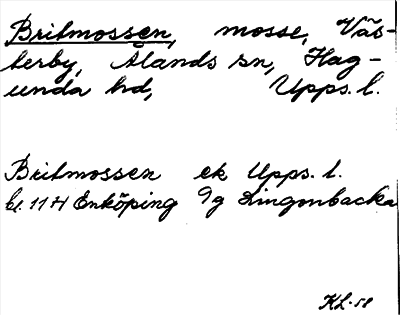 Britmossen, mosse, Väs-
terby, Ålands sn, Hag-
unda hd, Upps. l.
Britmossen ek Upps. l.
bl. 11 H Enköping 9g Lingonbacka
KL-58